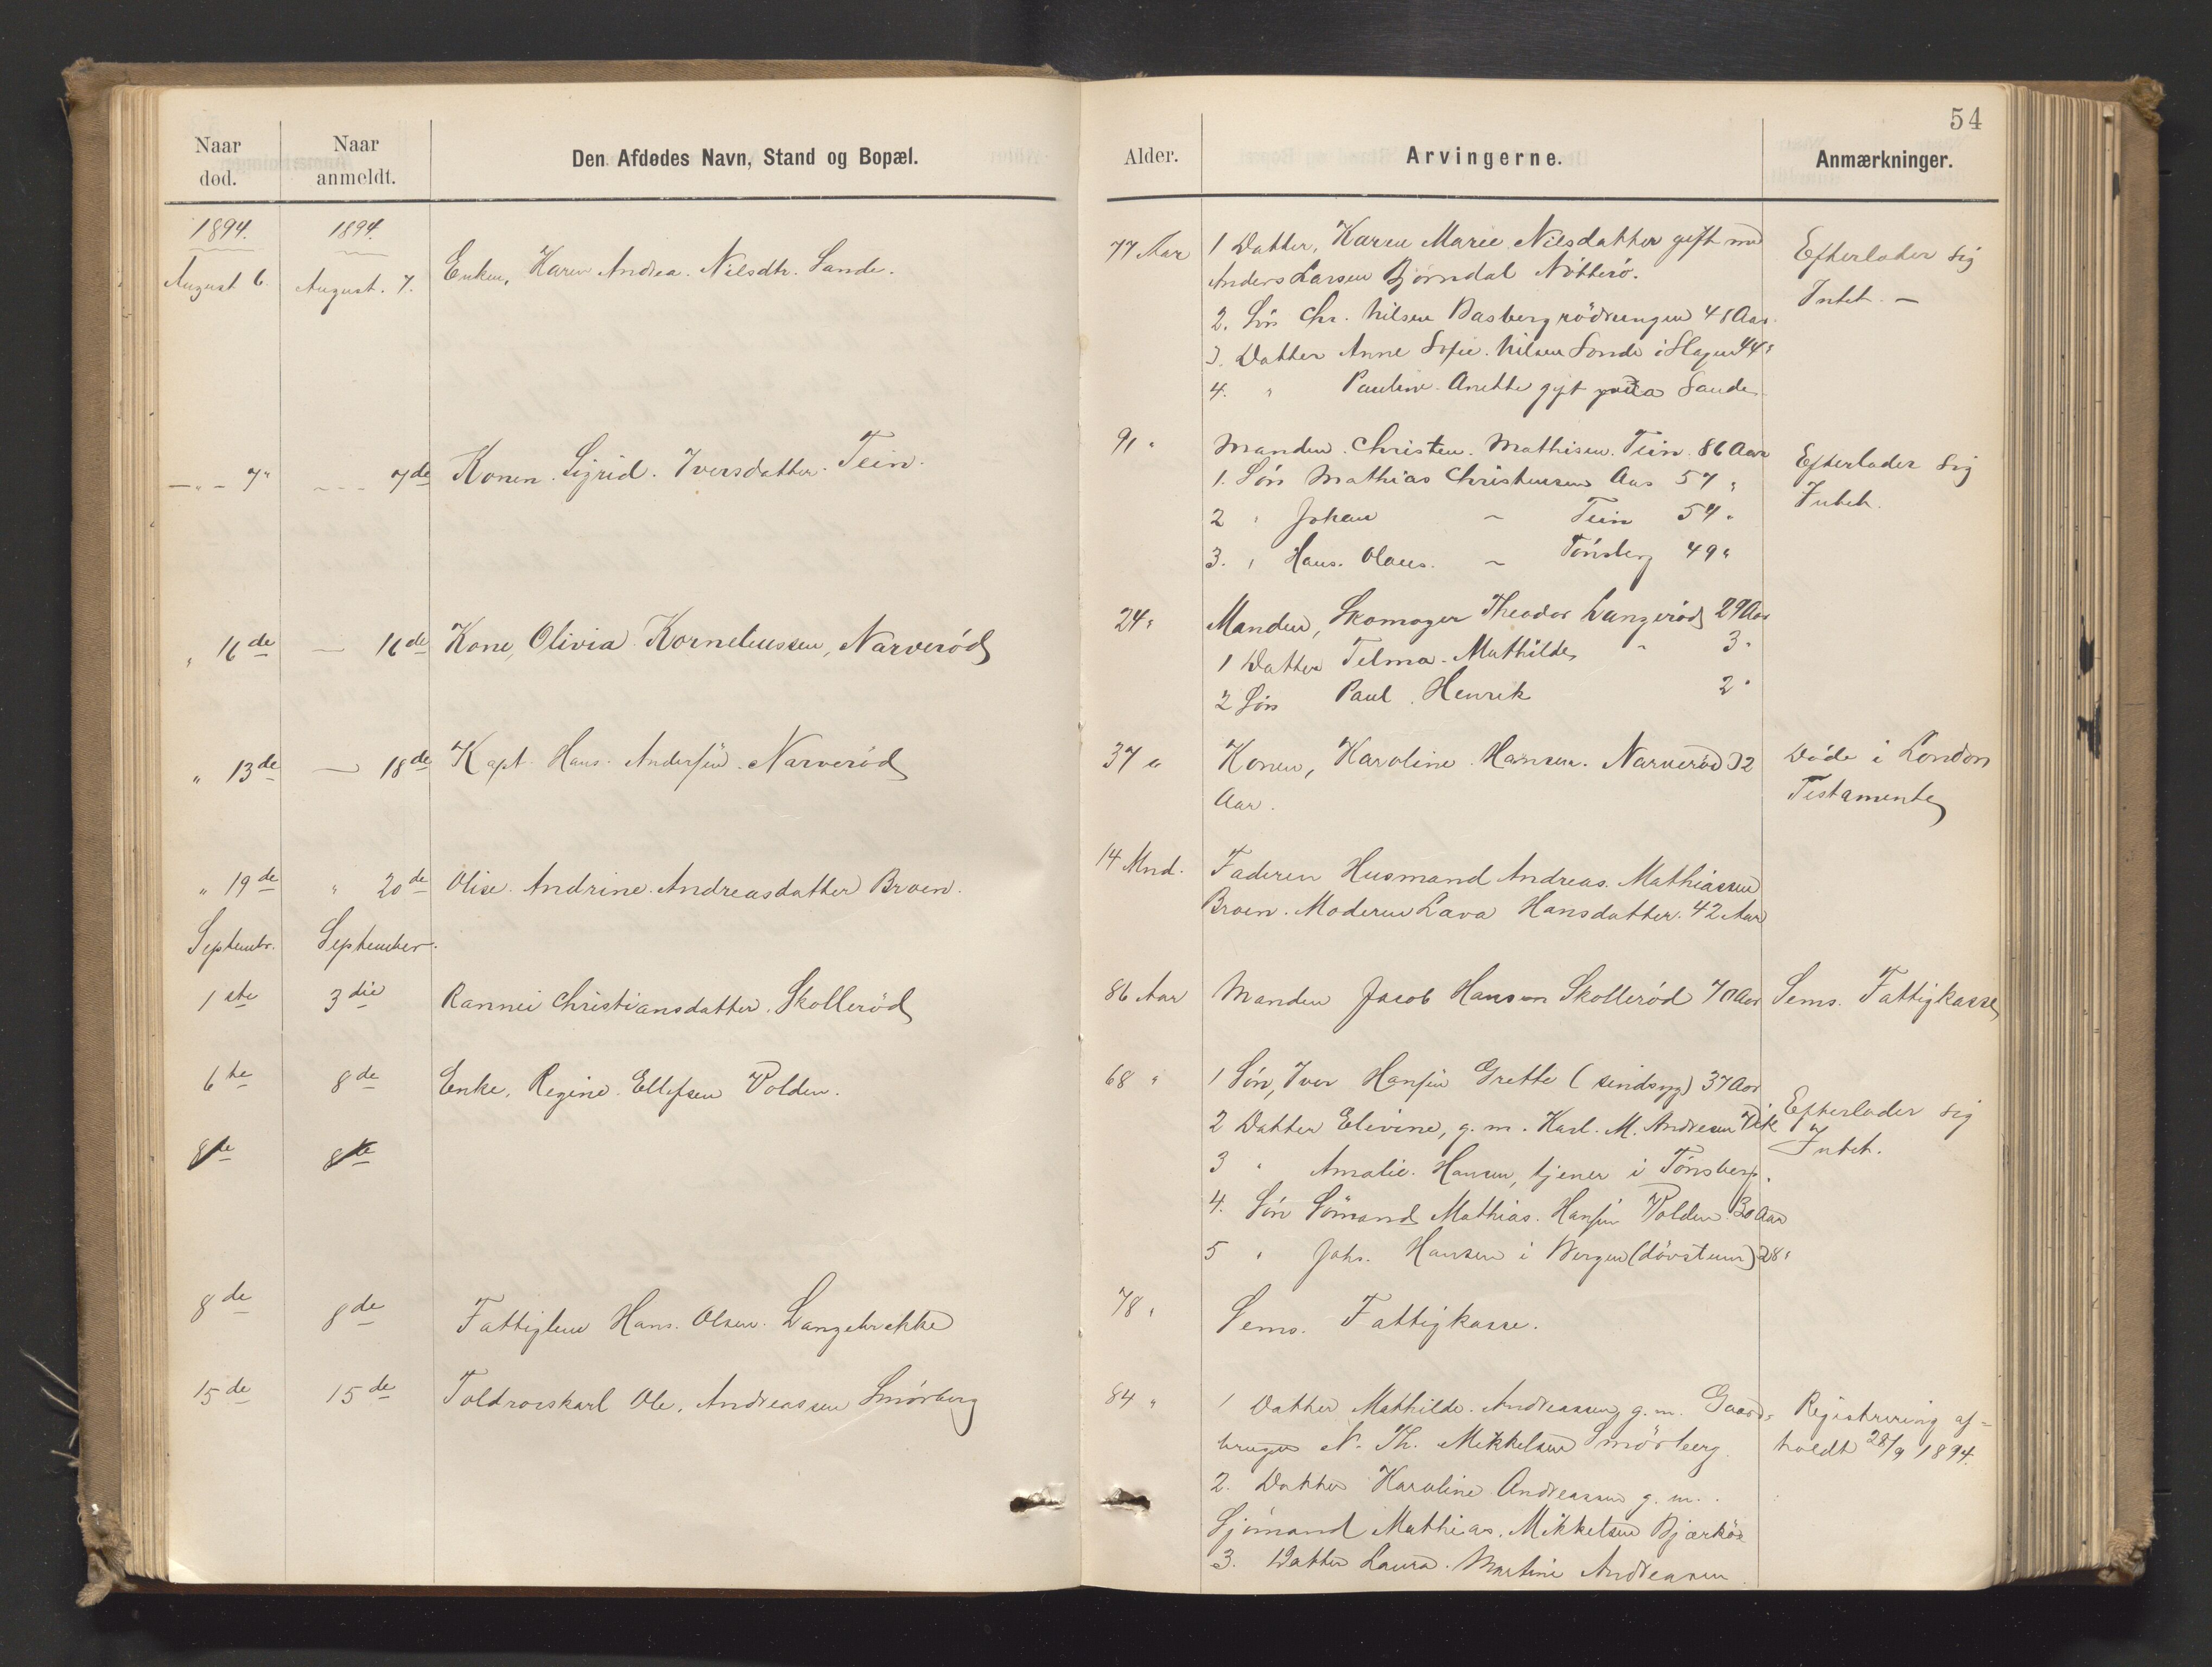 54
Naar død. Naar anmeldt. Den Afdødes Navn, Stand og Bopæl. Alder. Arvingerne. Anmærkninger.
1894. 1894.
August 6. August. 7. Enken, Karen Andrea. Nilsdtr. Sande. 77 Aar 1 Datter, Karen Marie Nilsdatter gift med Efterlader sig
Anders Larsen Bjørndal Nötterö. Intet. —
2. Søn Chr. Nilsen Basbergrödningen 48 Aar.
3. Datter Anne Sofie. Nilsen Sande i Slagen 44 "
4. " Pauline Anette gift Sande.
— " — 7 " — — — 7de Konen. Sigrid. Iversdatter. Tein. 91 " Manden. Christen. Mathisen. Tein. 86 Aar Efterlader Sig
1. Søn Mathias Christensen Aas 57 " Intet.
2 " Johan — Tein 54 "
3. " Hans. Olaus. — Tönsberg 49 "
" 16de — 16de Kone, Olivia Korneliussen, Narveröd 24 " Manden, Skomager Theodor Langeröd 29 Aar
1 Datter Telma. Mathilde " 3 "
2 Søn Paul. Henrik 2 "
" 13de — 18de Kapt. Hans. Andersen. Narveröd 37 " Konen, Karoline Hansen. Narveröd 32 Döde i London
Aar. Testamente
" 19de " 20de Olise. Andrine. Andreasdatter Broen. 14 Mnd. Faderen Husmand Andreas. Mathiassen
Broen. Moderen Lava Hansdatter. 42 Aar
Septembr. September.
1ste 3die Rannei Christiansdatter. Skolleröd 86 Aar Manden Jacob Hansen Skolleröd 70 Aar Sems. Fattigkasse
6te 8de Enke. Regine. Ellefsen Volden. 68 " 1 Søn, Iver Hansen Grette (sindsyg) 37 Aar
2 Datter Elivine, g. m. Karl. M. Andresen Vik Efterlader sig
8de 8de 3 " Amalie. Hansen, tjener i Tönsberg. Intet.
4. Søn Sömand Mathias. Hansen Volden. 30 Aar
5 " Johs. Hansen i Bergen (dövstum) 28 "
8de 8de Fattiglem Hans. Olsen. Langebrekke 78 " Sems. Fattigkasse.
15de 15de Toldroerskarl Ole. Andreassen Smörberg 84 " 1 Datter Mathilde. Andreassen, g. m. Gaard= Registrering af=
bruger N. Th. Mikkelsen Smörberg. holdt 28/9 1894.
2. Datter Karoline Andreassen g. m.
Sjömand Mathias. Mikkelsen Bjerkö
3. Datter Laura. Martine Andreasen